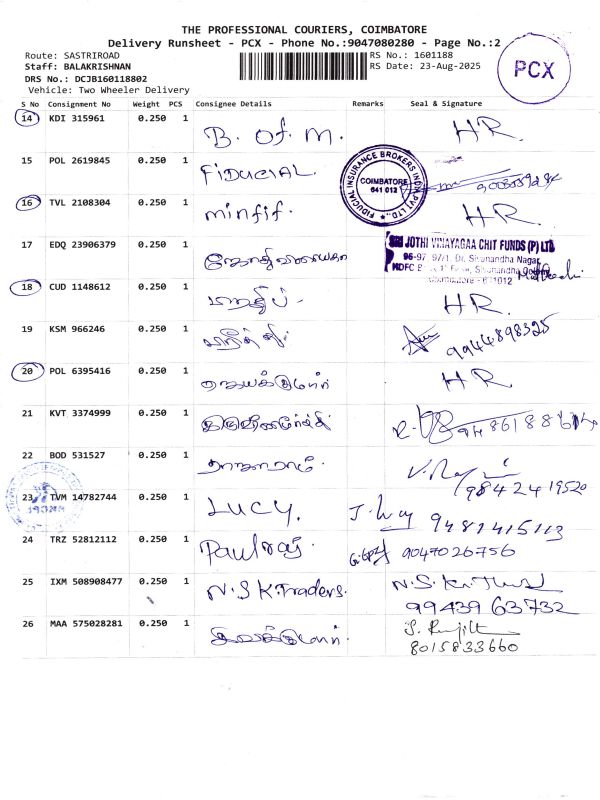 THE PROFESSIONAL COURIERS, COIMBATORE
Delivery Runsheet - PCX - Phone No.:9047080280 - Page No.:2
Route: SASTRIROAD
RS No.: 1601188
Staff: BALAKRISHNAN
RS Date: 23-Aug-2025
DRS No.: DCJB160118802
Vehicle: Two Wheeler Delivery
PCX
S No Consignment No Weight PCS Consignee Details Remarks Seal & Signature
14 KDI 315961 0.250 1 B. of. M. HR.
15 POL 2619845 0.250 1 FIDUCIAL.
FIDUCIAL INSURANCE BROKERS INDIA PVT LTD.,
COIMBATORE
641 012
16 TVL 2108304 0.250 1 minfif. HR.
17 EDQ 23906379 0.250 1
SRI JOTHI VINAYAGAA CHIT FUNDS (P) LTD
96-97, 97/1, Dr. Sivanandha Nagar,
Coimbatore - 641012
18 CUD 1148612 0.250 1 HR.
19 KSM 966246 0.250 1 9944898325
20 POL 6395416 0.250 1 ஜெயக்குமார் HR.
21 KVT 3374999 0.250 1
22 BOD 531527 0.250 1 ராஜாராம். 9842419520
23 TVM 14782744 0.250 1 LUCY. J. Lucy
24 TRZ 52812112 0.250 1 Paulraj. 9047026756
25 IXM 508908477 0.250 1 N.S.K.Traders.
9943963732
26 MAA 575028281 0.250 1
8015833660